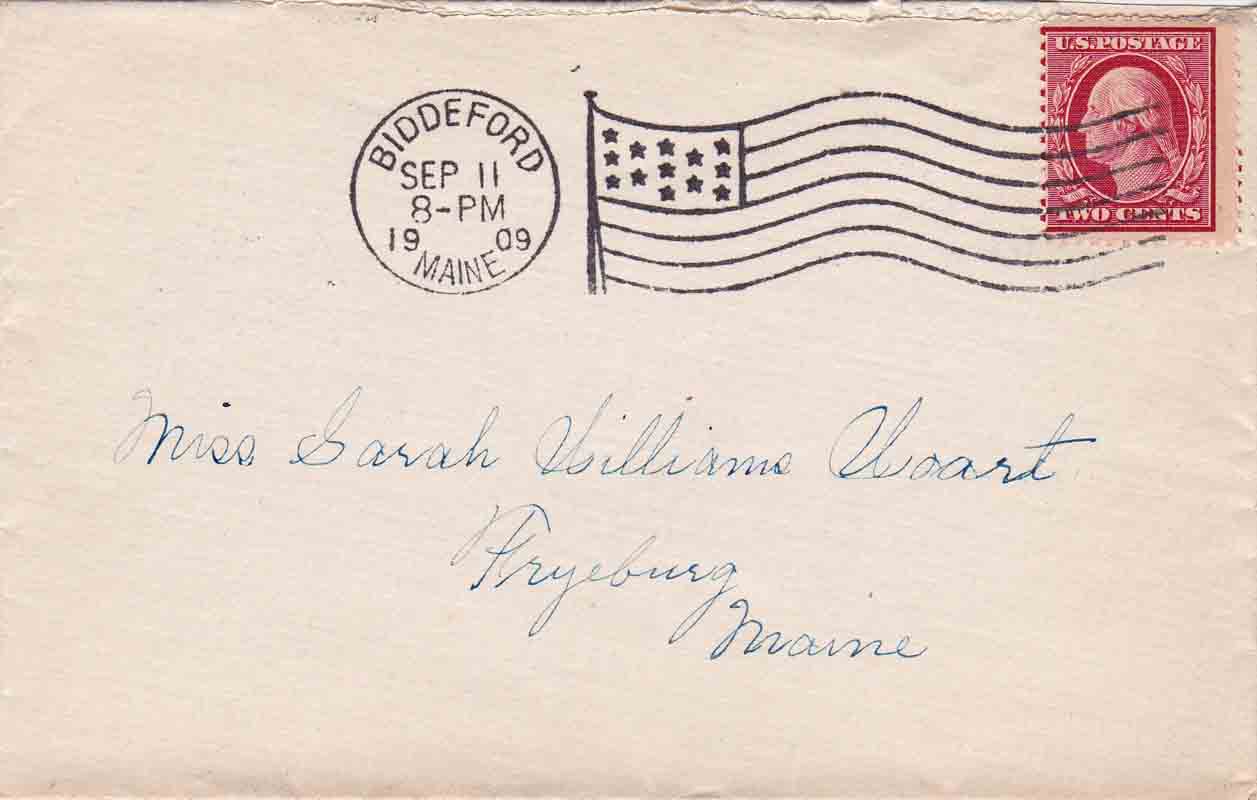 U.S. POSTAGE
TWO CENTS
BIDDEFORD
SEP 11
8-PM
19 09
MAINE
Miss Sarah Williams Woart
Fryeburg
Maine